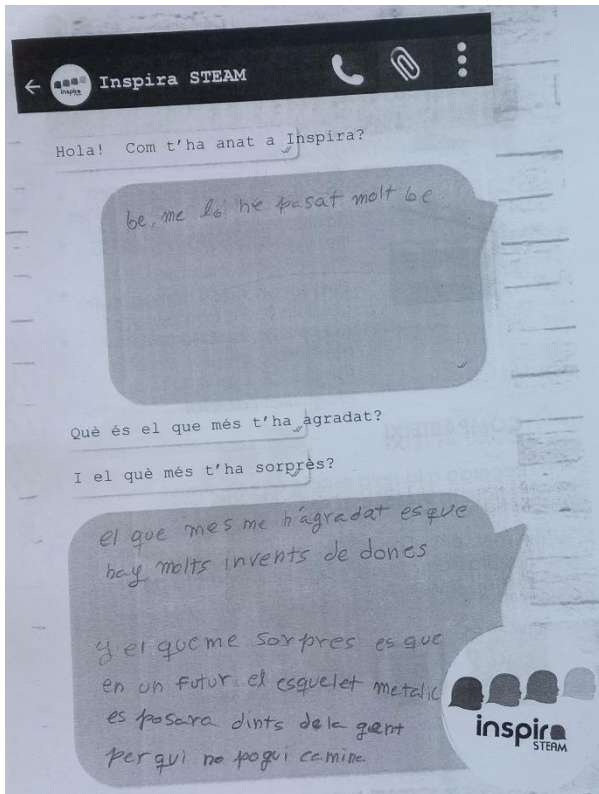 inspira
Inspira STEAM
Hola! Com t'ha anat a Inspira?
be, me lo he pasat molt be
Què és el que més t'ha agradat?
I el què més t'ha sorprès?
el que mes me h'agradat es que
hay molts invents de dones
y el que me sorpres es que
en un futur el esquelet metalic
es posara dints dela gent
per qui no pogui camine
inspira
STEAM